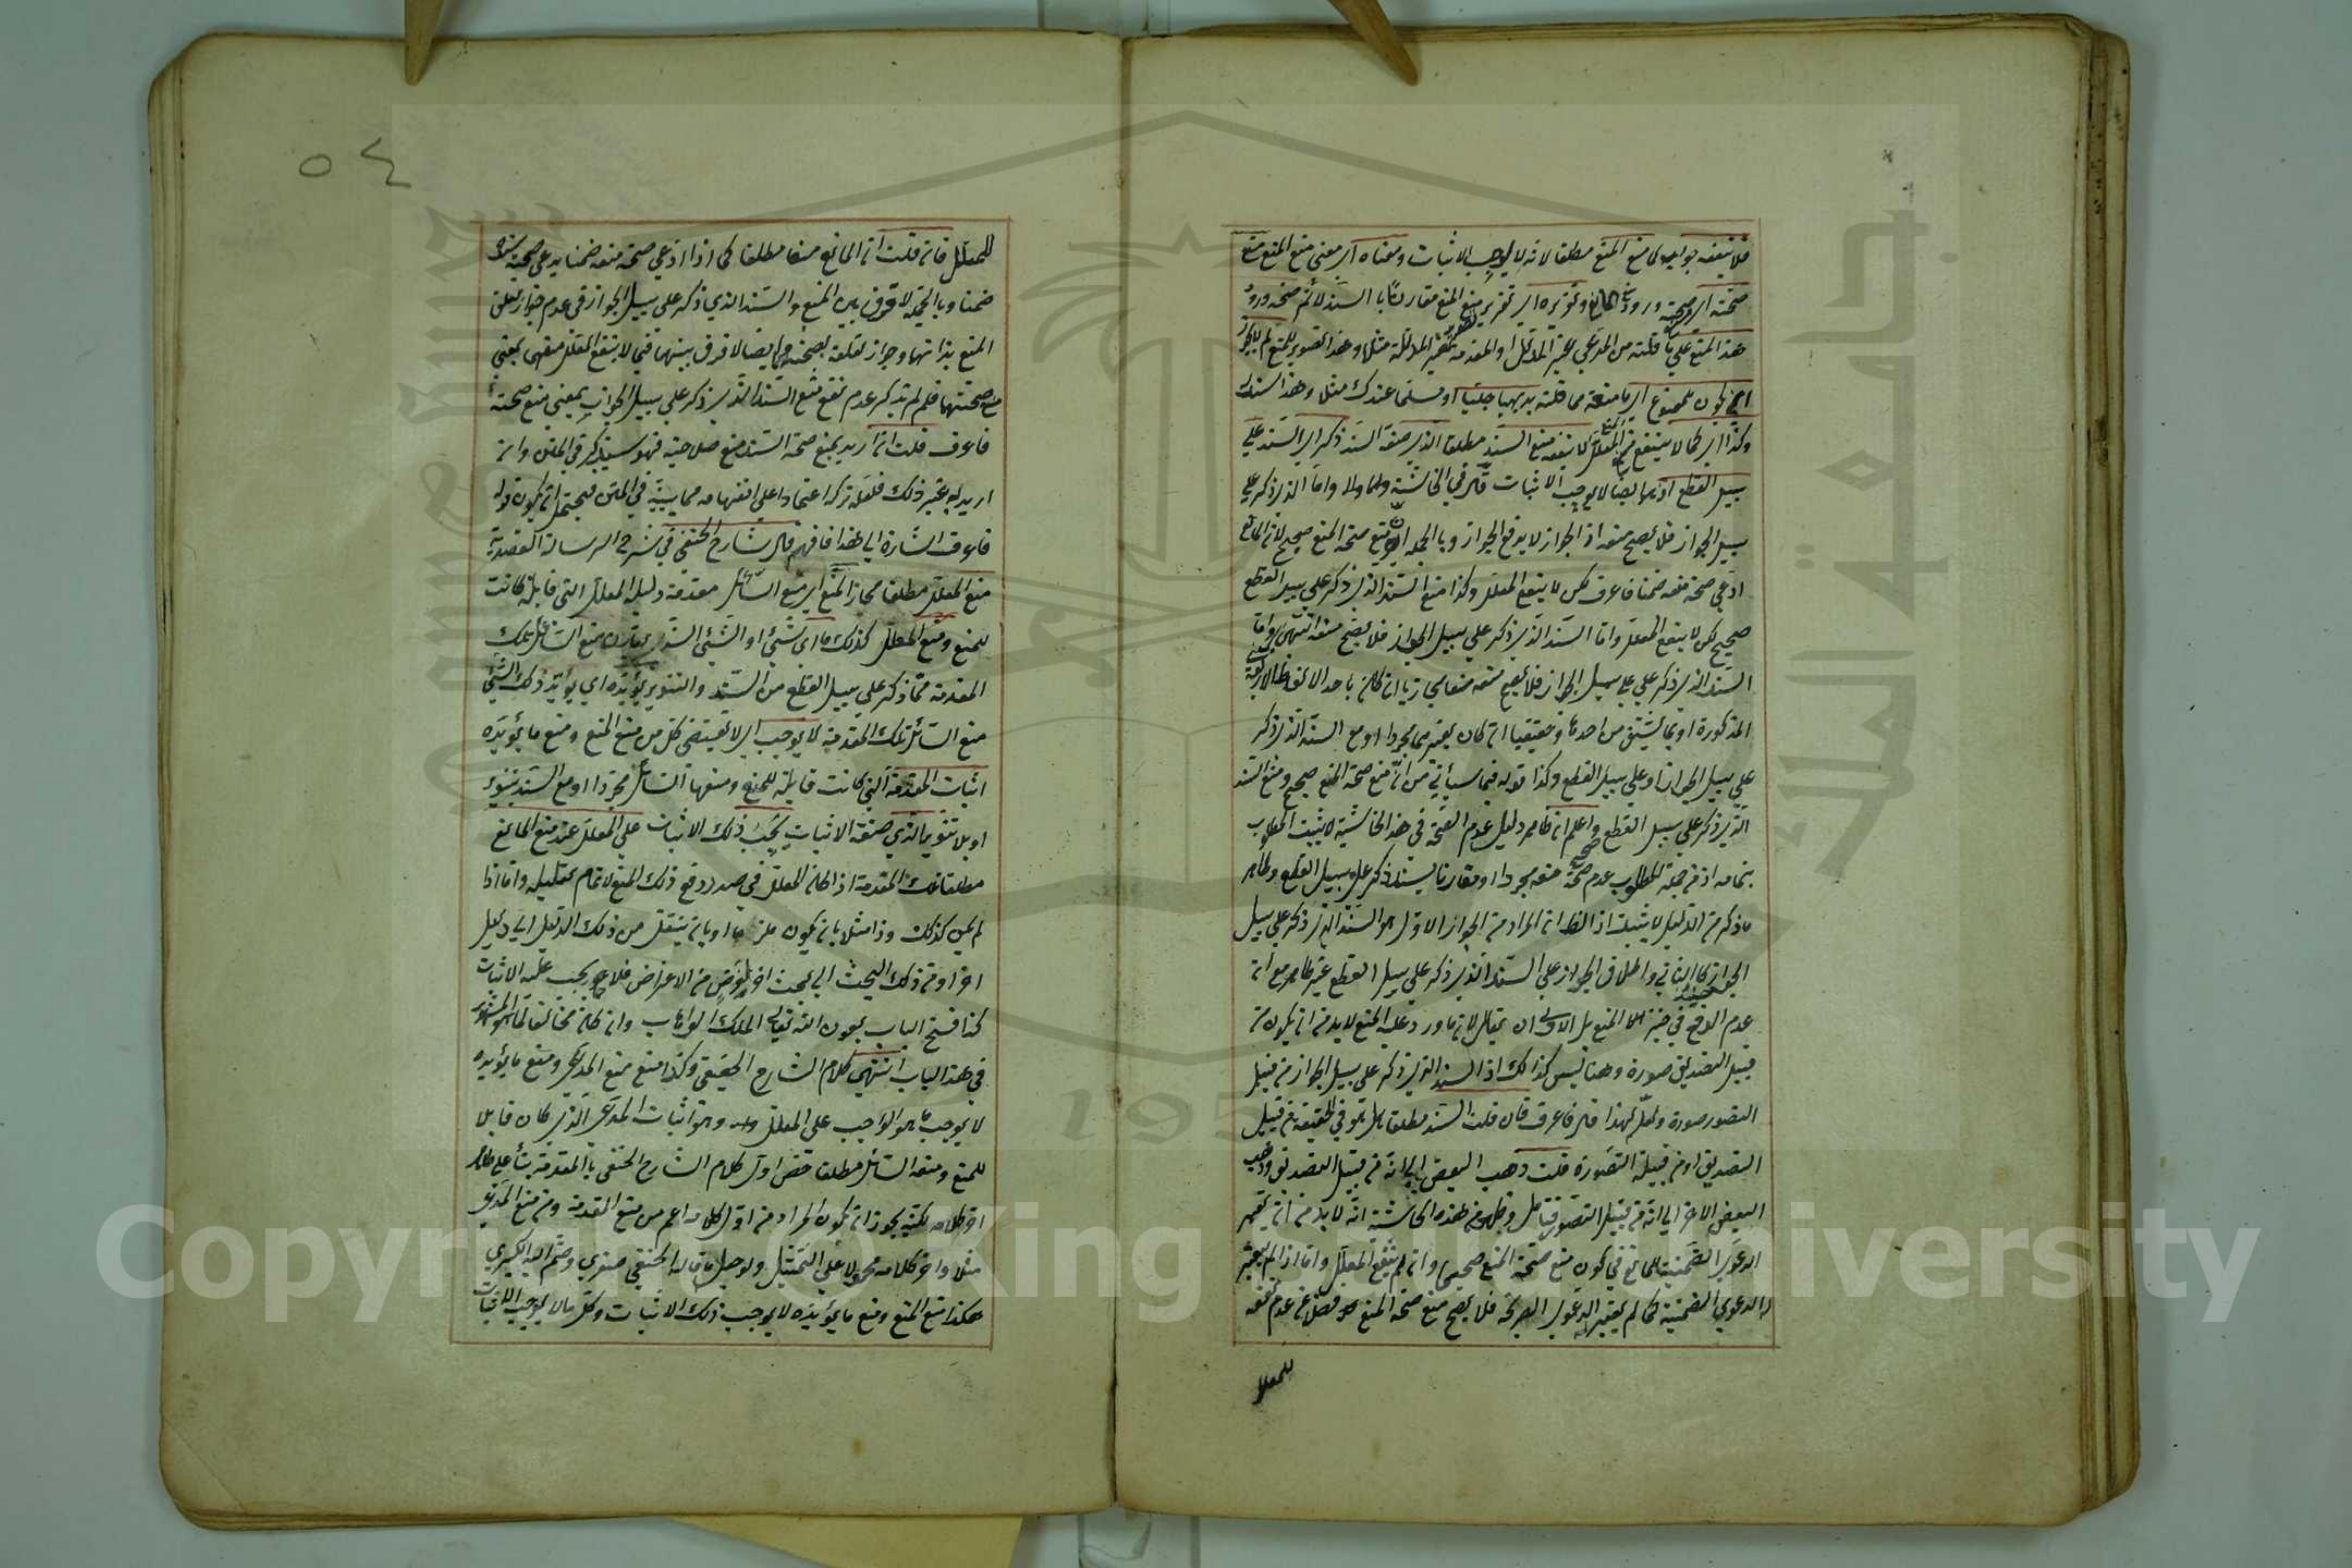 فلا ينفعه جوابه لما منع المنع مطلقا لانه لا يوجب الاثبات ومعناه اي معنى منع المنع منع
صحته اي صحة ورود المنع وتقريره اي تقرير منع المنع مقارنا بالسند لا نم صحة ورود
هذا المنع على ما قلته من المدعى الغير المدلل او المقدمة الغير المدللة مثلا وهذا تصوير للمنع لم لا يجوز
ان يكون الممنوع اي ما منعته مما قلته بديهيا جليا او مسلما عندك مثلا وهذا سند له
وكذا اي كما لا ينفع المعلل لا ينفعه منع السند مطلقا الذي صفة السند ذكر اي السند على
سبيل القطع اذ هو ايضا لا يوجب الاثبات قال في الحاشية واما الذي ذكر على
سبيل الجواز فلا يصح منعه اذ الجواز لا يدفع الجواز وبالجملة ان منع صحة المنع صحيح لان المانع
ادعى صحة منعه ضمنا فاعرف لكن لا ينفع المعلل وكذا منع السند الذي ذكر على سبيل القطع
صحيح لكن لا ينفع المعلل واما السند الذي ذكر على سبيل الجواز فلا يصح منعه انتهى واما
السند الذي ذكر على سبيل الجواز فلا يصح منعه منعا مجازيا ان كان باحد الالفاظ
المذكورة او بما يشتق من احدها وحقيقيا ان كان بغيرهما مجردا او مع السند الذي ذكر
على سبيل الجواز او على سبيل القطع وكذا قوله فيما سيأتي من ان منع صحة المنع صحيح ومنع السند
الذي ذكر على سبيل القطع واعلم ان ظاهر دليل عدم الصحة في هذه الحاشية لا يثبت المطلوب
بتمامه اذ من جملة المطلوب عدم صحة منعه مجردا او مقارنا بسند ذكر على سبيل القطع وظاهر
ما ذكر من الدليل لا يثبت اذ الظ ان المراد من الجواز الاول هو السند الذي ذكر على سبيل
الجواز كالثاني واطلاق الجواز على السند الذي ذكر على سبيل القطع غير ظاهر مع ان
عدم الدفع في حيز المنع بل الاولى ان يقال لان ما ورد عليه المنع لا بد من ان يكون من
قبيل التصديق صورة وههنا ليس كذلك اذ السند الذي ذكر على سبيل الجواز من قبيل
التصور صورة ولعله لهذا قال فاعرف فان قلت السند مطلقا هل هو في الحقيقة من قبيل
التصديق او من قبيل التصور قلت ذهب البعض الى انه من قبيل التصديق وذهب
البعض الاخر الى انه من قبيل التصور فتأمل وظهر من هذه الحاشية انه لا بد من ان يعتبر
الدعوى الضمنية للمانع في كون منع صحة المنع صحيحا وان لم ينفع المعلل واما اذا لم يعتبر
الدعوى الضمنية كما لم يعتبر الدعوى الصريحة فلا يصح منع صحة المنع فضلا عن عدم نفعه
للمعلل
٥٤
للمعلل فان قلت ان المانع منعا مطلقا كما اذا ادعى صحة منعه ضمنا يدعي صحة سنده
ضمنا وبالجملة لا فرق بين المنع والسند الذي ذكر على سبيل الجواز في عدم جواز تعلق
المنع بذاتهما وجواز تعلقه بصحتهما وايضا لا فرق بينهما فيما لا ينفع المعلل منعهما بمعنى
منع صحتهما فلم لم يذكر عدم نفع منع السند الذي ذكر على سبيل الجواز بمعنى منع صحته
فاعرف قلت ان اريد بمنع صحة السند منع صلاحيته فهو سيذكر في المتن وان
اريد به غير ذلك فلعله تركه اعتمادا على انفهامه مما يبينه في المتن فيحتمل ان يكون قوله
فاعرف اشارة الى هذا فافهم قال شارح الحنفي في شرح الرسالة العضدية
منع المعلل مطلقا مجاز المنع اي منع السائل مقدمة دليل المعلل التي قابلة كانت
للمنع ومنع المعلل كذلك ما اي شيئ او الشيئ الذي يقارن منع السائل تلك
المقدمة مما ذكر على سبيل القطع من السند والتنوير يؤيده اي يؤيد ذلك الشيئ
منع السائل تلك المقدمة لا يوجب اي لا يقتضي كل من منع المنع ومنع ما يؤيده
اثبات المقدمة التي كانت قابلة للمنع ومنعها السائل مجردا او مع السند بتنوير
او بلا تنوير الذي صفة الاثبات يجب ذلك الاثبات على المعلل عند منع المانع
مطلقا تلك المقدمة اذا كان المعلل في صدد دفع ذلك المنع لاتمام تعليله واما اذا
لم يكن كذلك وذا مثلا بان يكون ملزما او بان ينتقل من ذلك الدليل الى دليل
اخر او من ذلك البحث الى بحث اخر لغرض من الاغراض فلا يجب عليه الاثبات
كذا فتح الباب بعون الله تعالى الملك الوهاب وان كان مخالفا لما هو المشهور
في هذا الباب انتهى كلام الشارح الحنفي وكذا منع منع المدعى ومنع ما يؤيده
لا يوجب ما هو الواجب على المعلل وهو اثبات المدعى الذي كان قابلا
للمنع ومنعه السائل مطلقا خص اول كلام الشارح الحنفي بالمقدمة بناء على ظاهر
اخر كلامه لكنه يجوز ان يكون المراد من اول كلامه اعم من منع المقدمة ومن منع المدعى
مثلا واخر كلامه محمولا على التمثيل ولو جعل ما قاله الحنفي صغرى وضم اليه الكبرى
هكذا منع المنع ومنع ما يؤيده لا يوجب ذلك الاثبات وكل ما لا يوجب الاثبات
Copyright © King Saud University
جامعة الملك سعود
King Saud University
1957